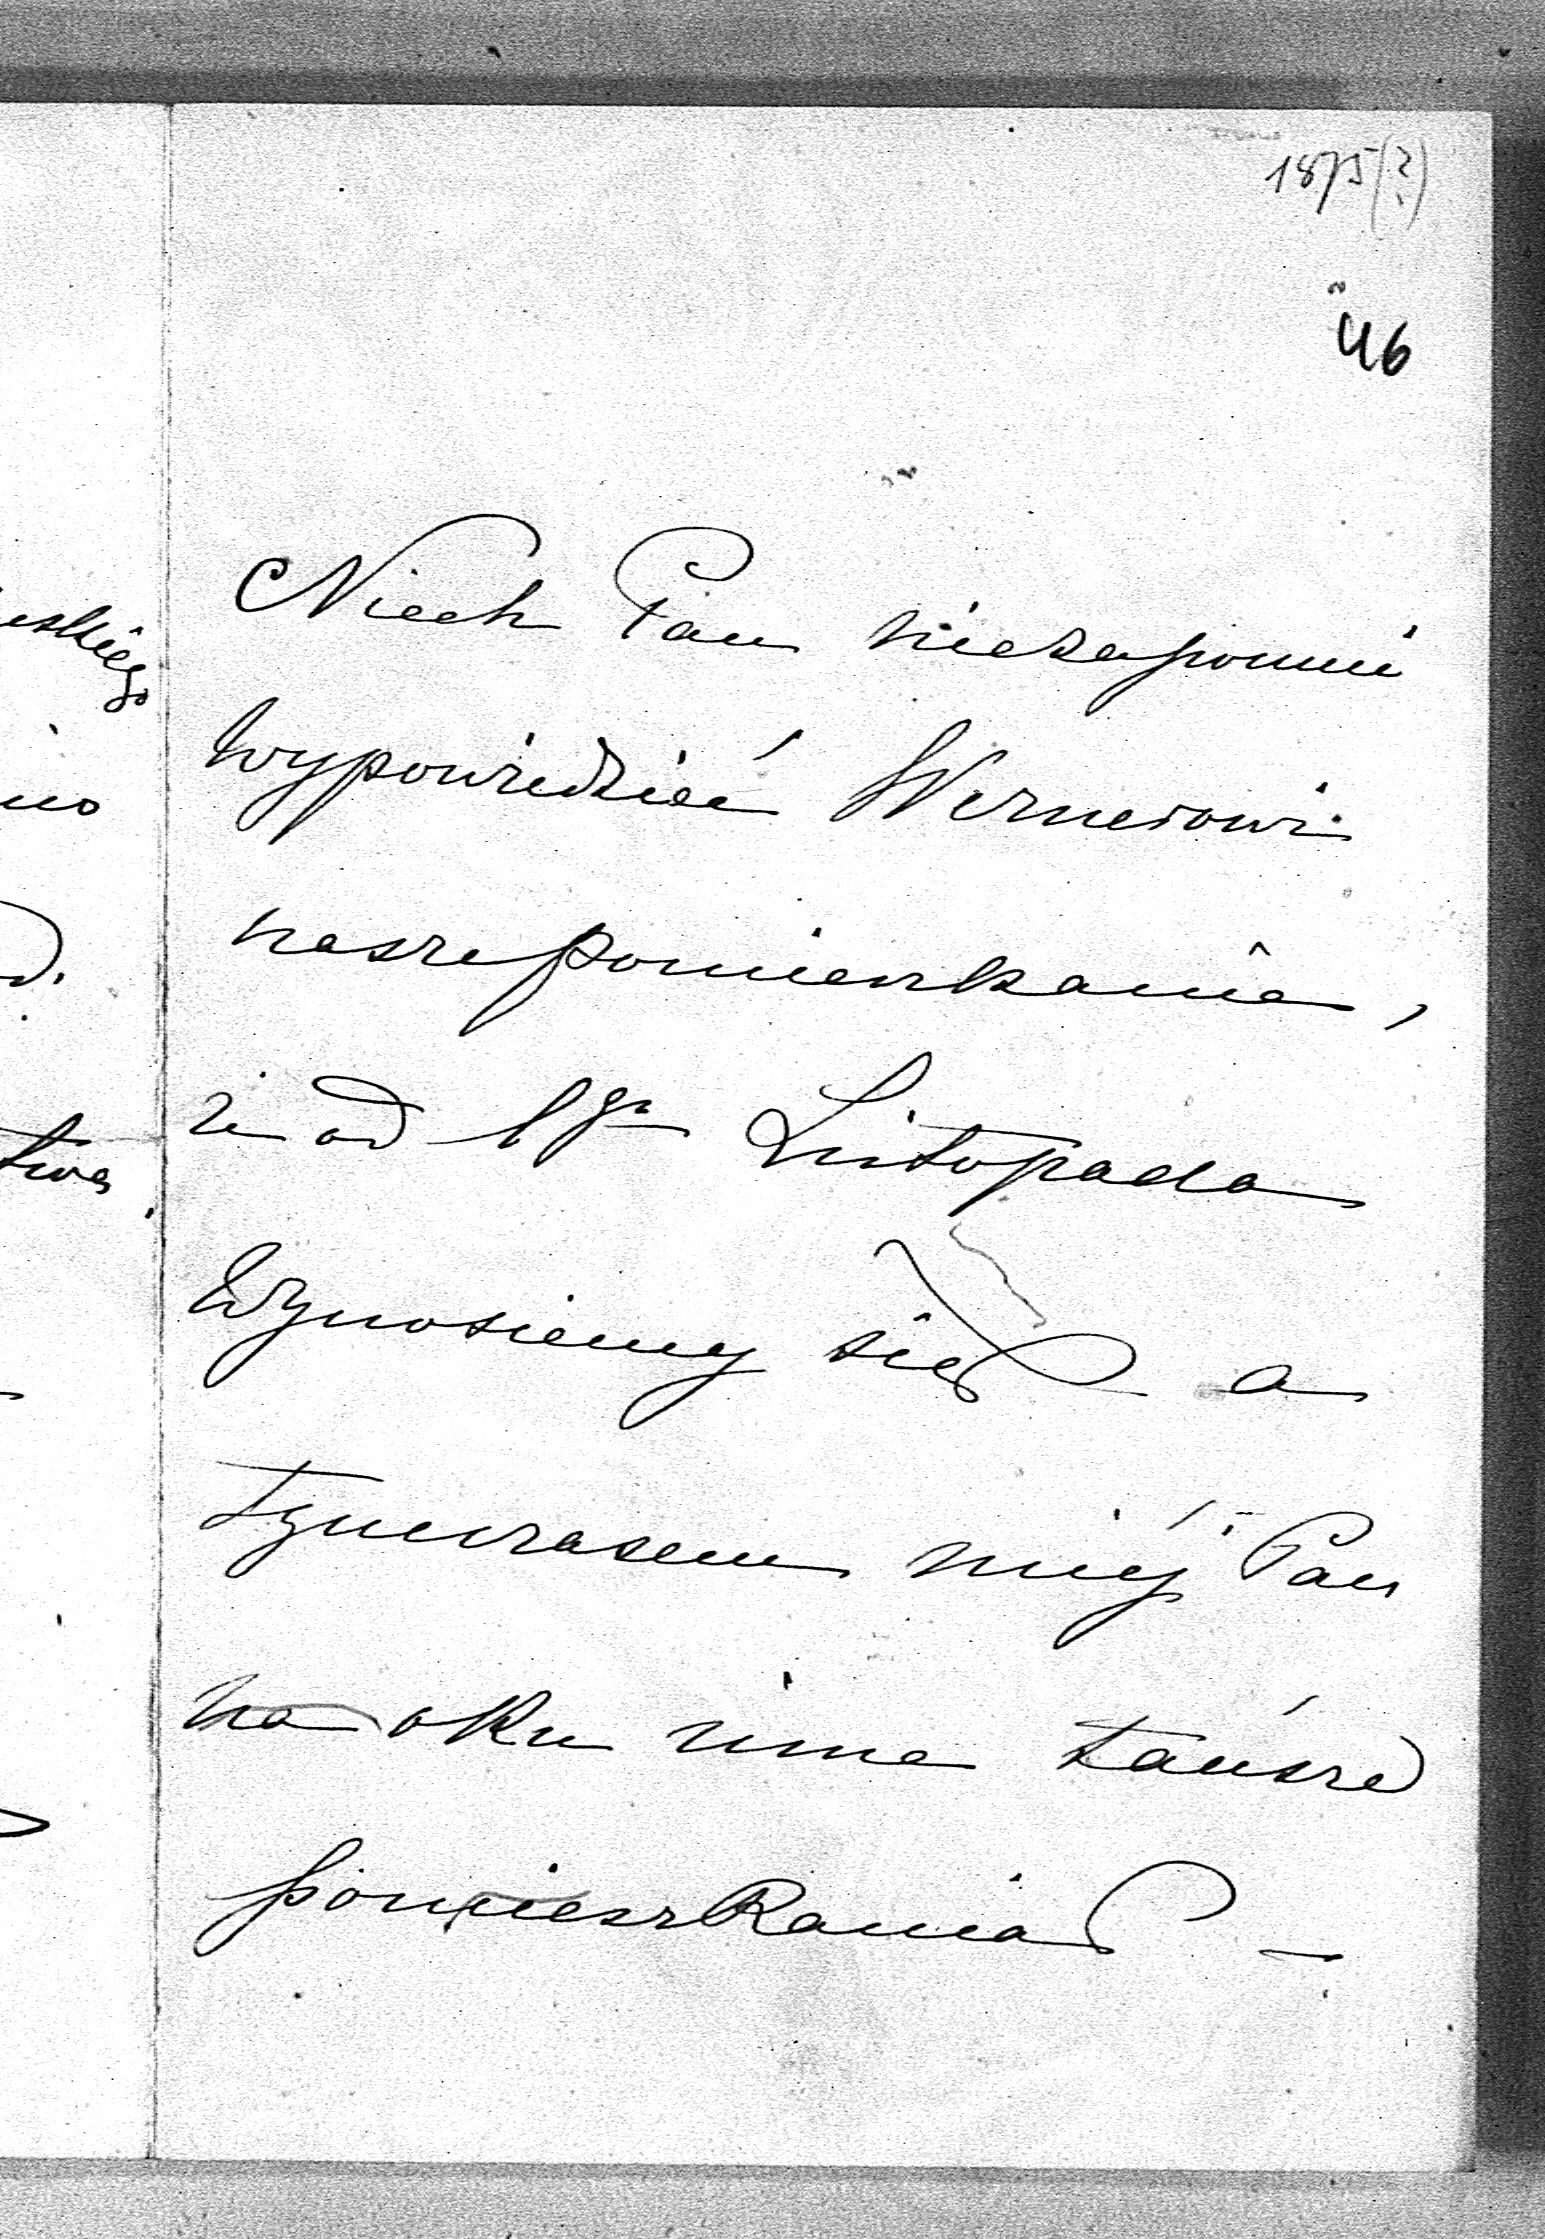 1875(?)
46
Niech Pan niezapomni
wypowiedzieć Wernerowi
nasze pomieszkanie,
że od 1go Listopada
wynosiemy się a
tymczasem miéj Pan
na oku inne tańsze
pomieszkania –
uskiego
no
d.
twa